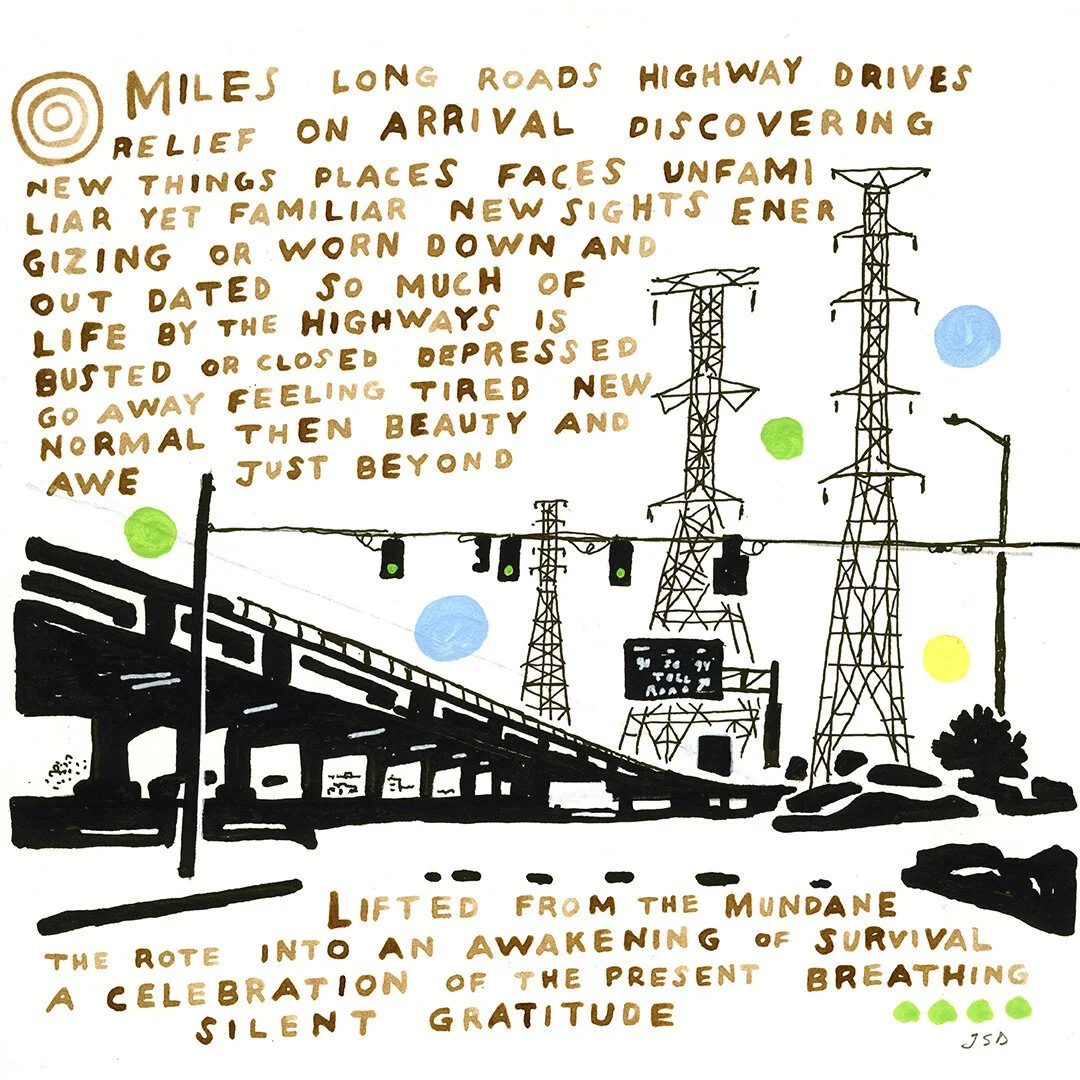 MILES LONG ROADS HIGHWAY DRIVES
RELIEF ON ARRIVAL DISCOVERING
NEW THINGS PLACES FACES UNFAMI
LIAR YET FAMILIAR NEW SIGHTS ENER
GIZING OR WORN DOWN AND
OUT DATED SO MUCH OF
LIFE BY THE HIGHWAYS IS
BUSTED OR CLOSED DEPRESSED
GO AWAY FEELING TIRED NEW
NORMAL THEN BEAUTY AND
AWE JUST BEYOND
TOLL
ROAD
LIFTED FROM THE MUNDANE
THE ROTE INTO AN AWAKENING OF SURVIVAL
A CELEBRATION OF THE PRESENT BREATHING
SILENT GRATITUDE
JSD